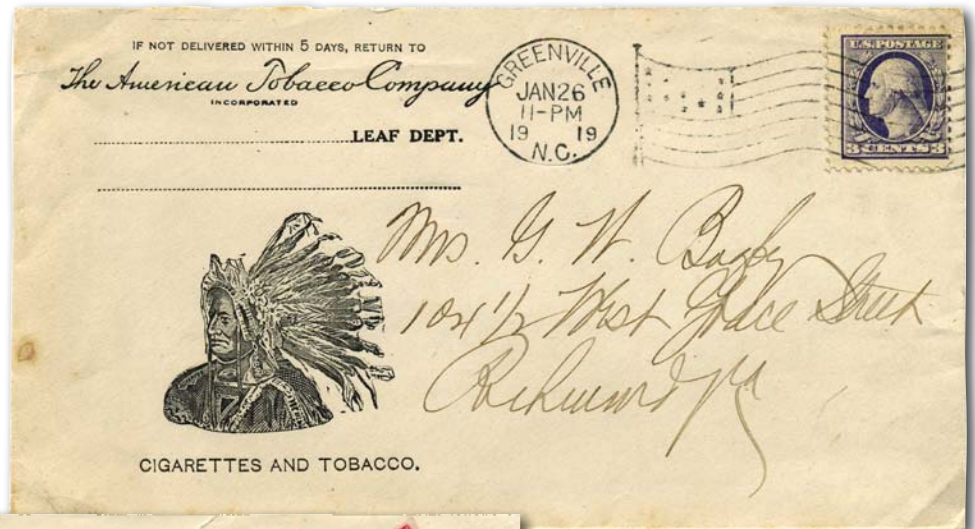 IF NOT DELIVERED WITHIN 5 DAYS, RETURN TO
The American Tobacco Company
INCORPORATED
LEAF DEPT.
GREENVILLE
JAN 26
11-PM
19 19
N.C.
U.S. POSTAGE
3 CENTS 3
Mrs. G. W. Bagby
104 1/2 West Grace Street
Richmond Va
CIGARETTES AND TOBACCO.